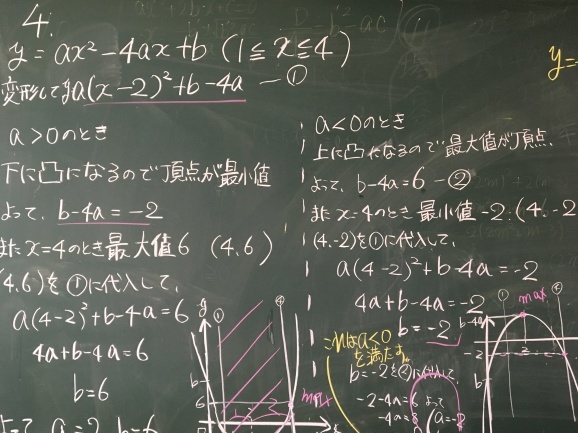 4.
y = ax² - 4ax + b (1 ≦ x ≦ 4)
変形してy=a(x-2)² + b - 4a — ①
a > 0 のとき
下に凸になるので頂点が最小値
よって、b - 4a = -2
また x = 4 のとき 最大値 6 (4,6)
(4,6)を①に代入して、
a(4-2)² + b - 4a = 6
4a + b - 4a = 6
b = 6
よって a = 2 b = 6
a < 0 のとき
上に凸になるので最大値が頂点、
よって、b - 4a = 6 — ②
また x = 4 のとき 最小値 -2 (4, -2
(4, -2)を①に代入して、
a(4-2)² + b - 4a = -2
4a + b - 4a = -2
b = -2
これは a < 0
を満たす。
b = -2を②に代入して、
-2 - 4a = 6 よって
-4a = 8 (a = -2
y
① ④
b
6
max
① ④
max
b-4a
-2
b
y =